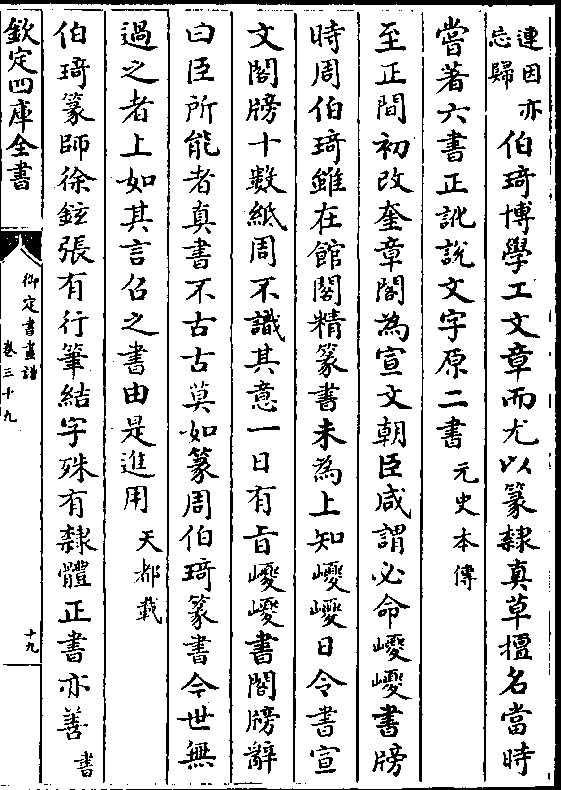 連因亦
忘歸
伯琦博學工文章而尤以篆隸真草擅名當時
嘗著六書正訛說文字原二書元史本傳
至正間初改奎章閣為宣文朝臣咸謂必命巙巙書牓
時周伯琦雖在館閣精篆書未為上知巙巙日令書宣
文閣牓十數紙周不識其意一日有旨巙巙書閣牓辭
曰臣所能者真書不古古莫如篆周伯琦篆書今世無
過之者上如其言召之書由是進用天都載
伯琦篆師徐鉉張有行筆結字殊有隸體正書亦善書
欽定四庫全書
御定書畫譜
卷三十九
十九